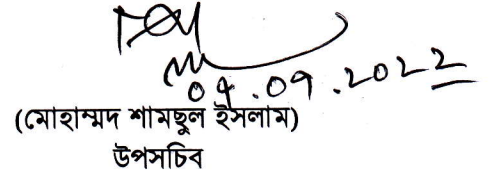 04.09.2022
(মোহাম্মদ শামছুল ইসলাম)
উপসচিব